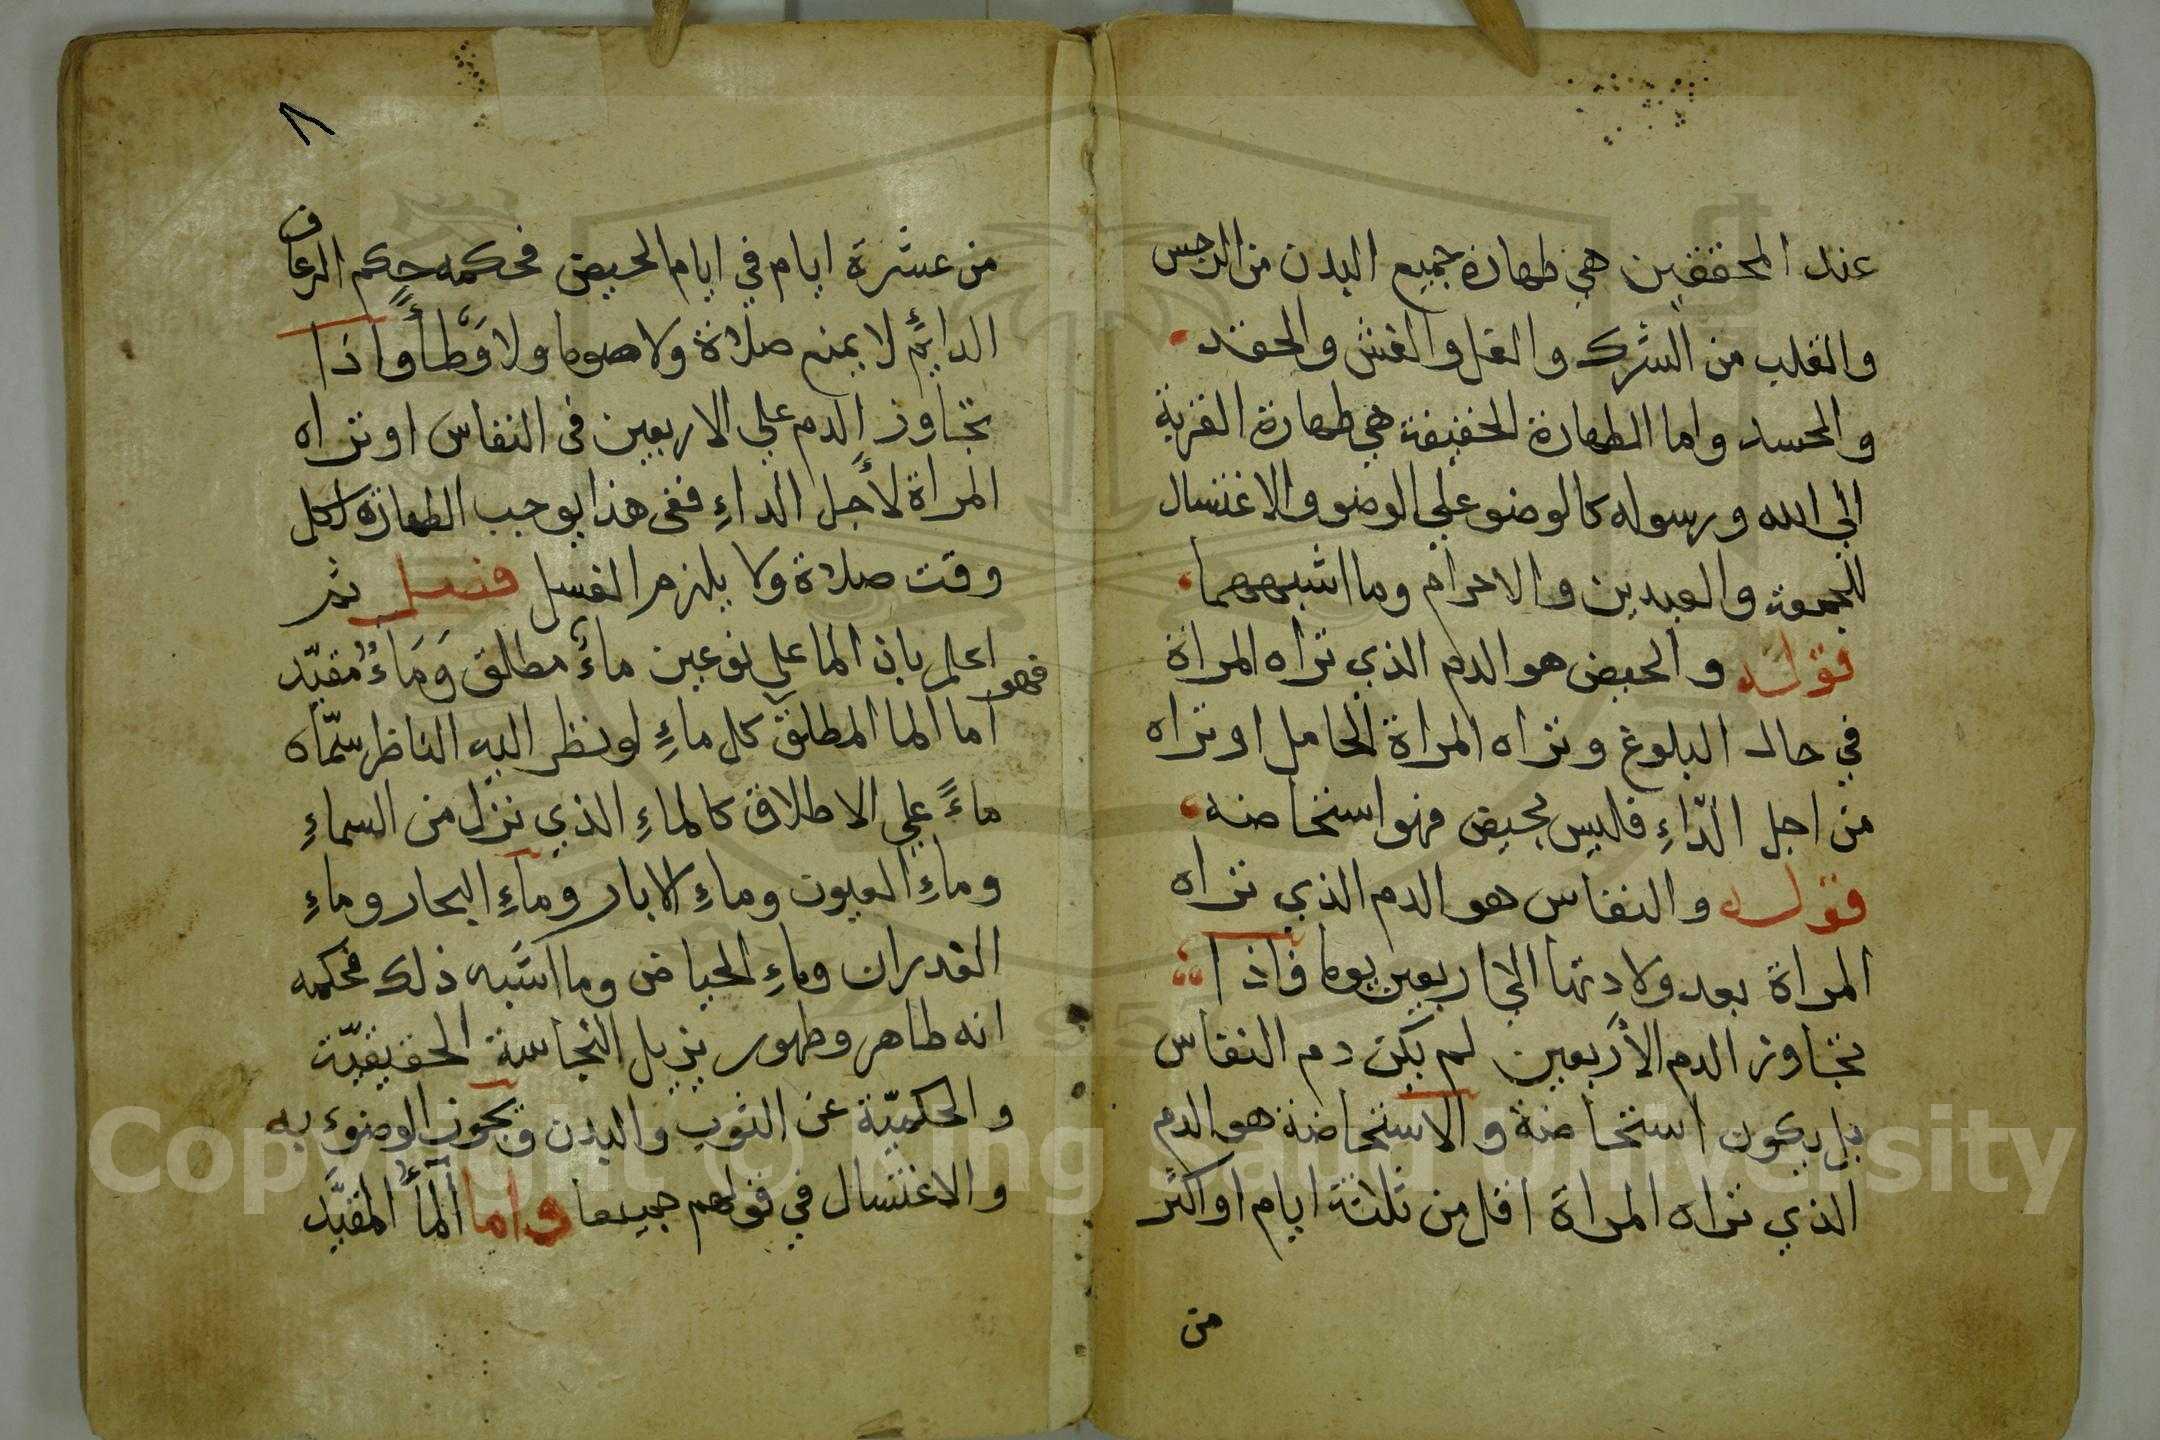 عند المحققين هي طهارة جميع البدن من الرجس
والقلب من الشرك والغل والغش والحقد
والحسد واما الطهارة الخفيفة هي طهارة القربة
الي الله ورسوله كالوضو علي الوضو والاغتسال
للجمعة والعيدين والاحرام وما اشبههما
قوله والحيض هو الدم الذي تراه المراة
في حال البلوغ وتراه المراة الحامل او تراه
من اجل الدّاءِ فليس بحيض فهو استحاضه
قوله والنفاس هو الدم الذي تراه
المراة بعد ولادتها الي اربعين يوما فاذا
تجاوز الدم الأربعين لم يكن دم النفاس
بل يكون استحاضة والاستحاضة هو الدم
الذي تراه المراة اقل من ثلثة ايام او اكثر
من
٨
من عشرة ايام في ايام الحيض فحكمه حكم الرعاف
الدايم لا يمنع صلاة ولا صوما ولا وَطأً واذا
تجاوز الدم علي الاربعين في النفاس او تراه
المراة لأجل الداءِ ففي هذا يوجب الطهارة لكل
وقت صلاة ولا يلزم الغسل فصل ثم
اعلم بان الما علي نوعين ماءٌ مطلق وَمَاءٌ مُقيّد
اما الما المطلق فهو كل ماءٍ لو نظر اليه الناظر سمّاه
ماءً علي الاطلاق كالماءِ الذي نزل من السماءِ
وماءِ العيون وماءِ الابار وماءِ البحار وماءِ
الغدران وماءِ الحياض وما اشبه ذلك فحكمه
انه طاهر وطهور يزيل النجاسة الحقيقيّة
والحكميّة عن الثوب والبدن ويجوز الوضوء به
والاغتسال في قولهم جميعا واما المأ المقيَّد
Copyright © King Saud University